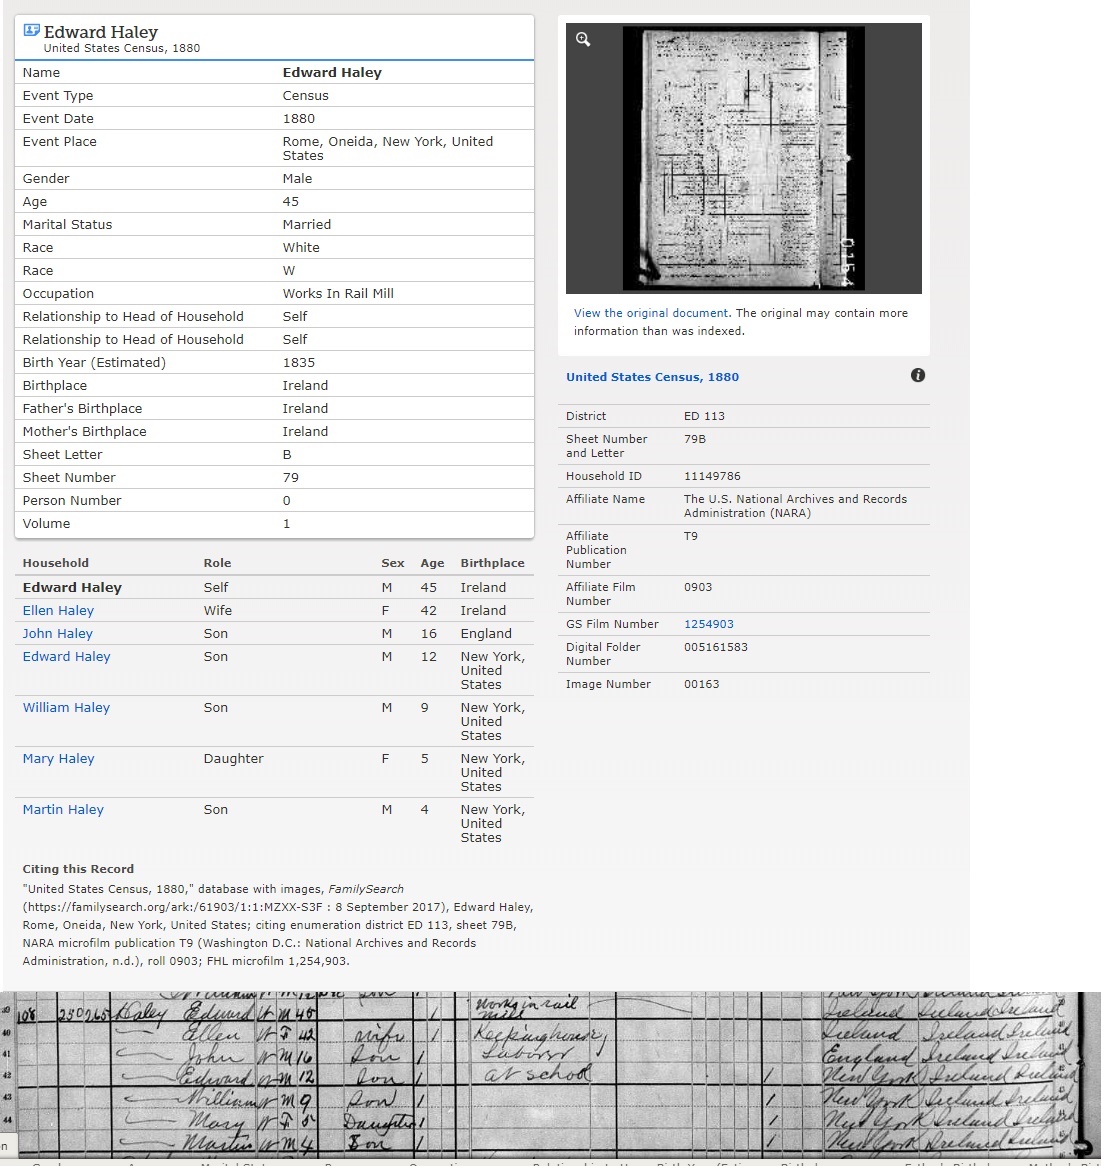 Edward Haley
United States Census, 1880
Name Edward Haley
Event Type Census
Event Date 1880
Event Place Rome, Oneida, New York, United
States
Gender Male
Age 45
Marital Status Married
Race White
Race W
Occupation Works In Rail Mill
Relationship to Head of Household Self
Relationship to Head of Household Self
Birth Year (Estimated) 1835
Birthplace Ireland
Father's Birthplace Ireland
Mother's Birthplace Ireland
Sheet Letter B
Sheet Number 79
Person Number 0
Volume 1
Household Role Sex Age Birthplace
Edward Haley Self M 45 Ireland
Ellen Haley Wife F 42 Ireland
John Haley Son M 16 England
Edward Haley Son M 12 New York,
United
States
William Haley Son M 9 New York,
United
States
Mary Haley Daughter F 5 New York,
United
States
Martin Haley Son M 4 New York,
United
States
Citing this Record
"United States Census, 1880," database with images, FamilySearch
(https://familysearch.org/ark:/61903/1:1:MZXX-S3F : 8 September 2017), Edward Haley,
Rome, Oneida, New York, United States; citing enumeration district ED 113, sheet 79B,
NARA microfilm publication T9 (Washington D.C.: National Archives and Records
Administration, n.d.), roll 0903; FHL microfilm 1,254,903.
View the original document. The original may contain more
information than was indexed.
United States Census, 1880
District ED 113
Sheet Number 79B
and Letter
Household ID 11149786
Affiliate Name The U.S. National Archives and Records
Administration (NARA)
Affiliate T9
Publication
Number
Affiliate Film 0903
Number
GS Film Number 1254903
Digital Folder 005161583
Number
Image Number 00163
works in rail
108 250 265 Haley Edward W M 45 / mill Ireland Ireland Ireland
40 Ellen W F 42 wife / Keeping house Ireland Ireland Ireland
41 John W M 16 Son / Labor England Ireland Ireland
42 Edward W M 12 Son / at school / New York Ireland Ireland
43 William W M 9 Son / / New York Ireland Ireland
44 Mary W F 5 Daughter / / New York Ireland Ireland
Martin W M 4 Son / / New York Ireland Ireland